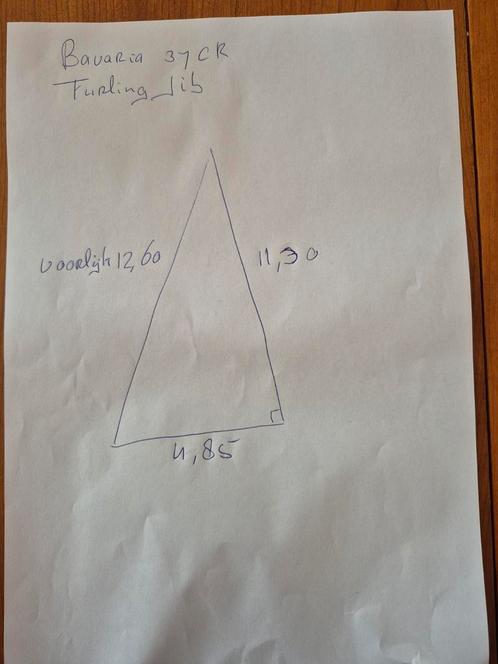 Bavaria 37 CR
Furling Jib
voorlijk 12,60
11,30
4,85